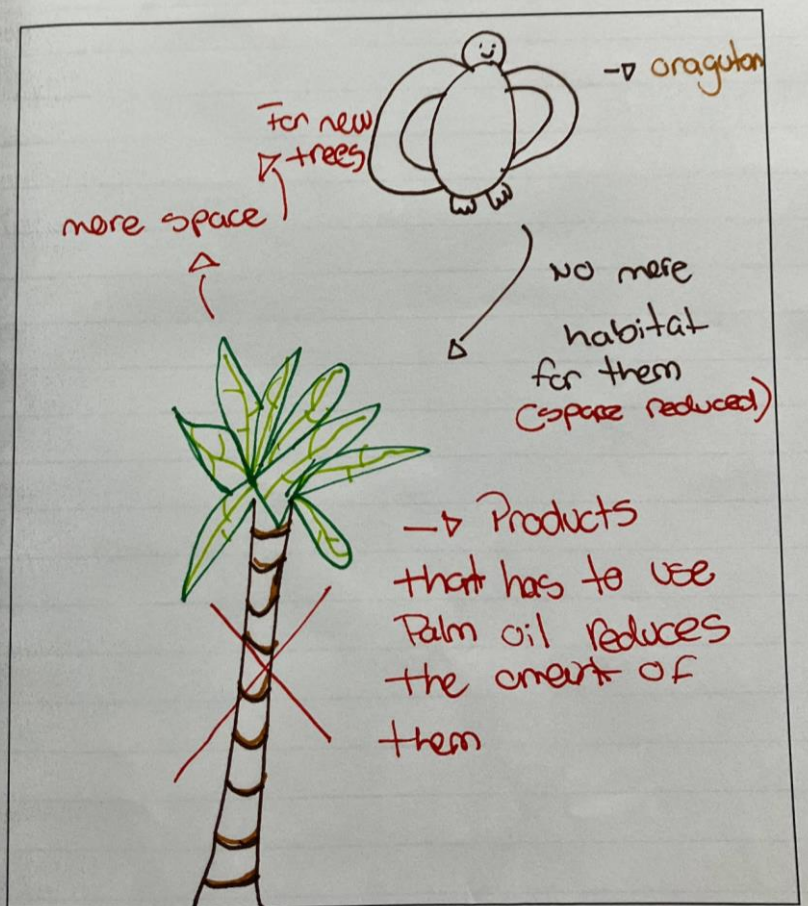 → oragutan
For new
trees
more space
No more
habitat
for them
(space reduced)
→ Products
that has to use
Palm oil reduces
the amout of
them